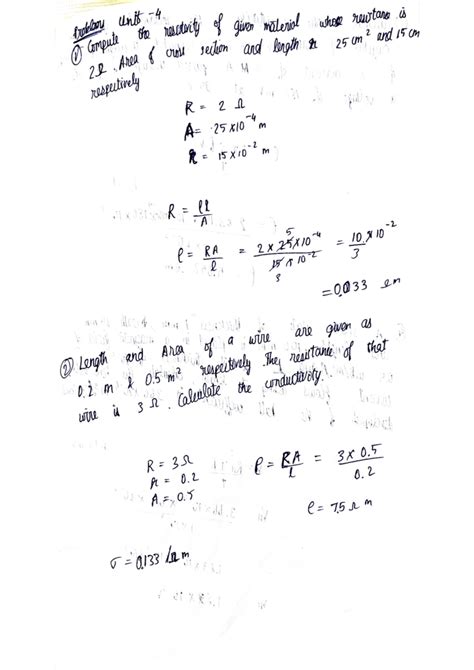 Problem Unit -4
① Compute the resistivity of given material whose resistance is
2Ω. Area of cross section and length is 25 cm² and 15 cm
respectively
R = 2 Ω
A = 25×10⁻⁴ m
l = 15×10⁻² m
R = ρl/A
ρ = RA/l = 2 × 25×10⁻⁴ / 15 × 10⁻² = 10/3 × 10⁻²
5
3
= 0.033 Ωm
② Length and Area of a wire are given as
0.2 m & 0.5 m² respectively. The resistance of that
wire is 3 Ω. Calculate the conductivity.
R = 3Ω
l = 0.2
A = 0.5
ρ = RA/L = 3 × 0.5 / 0.2
ρ = 7.5 Ω m
σ = 0.133 /Ω m